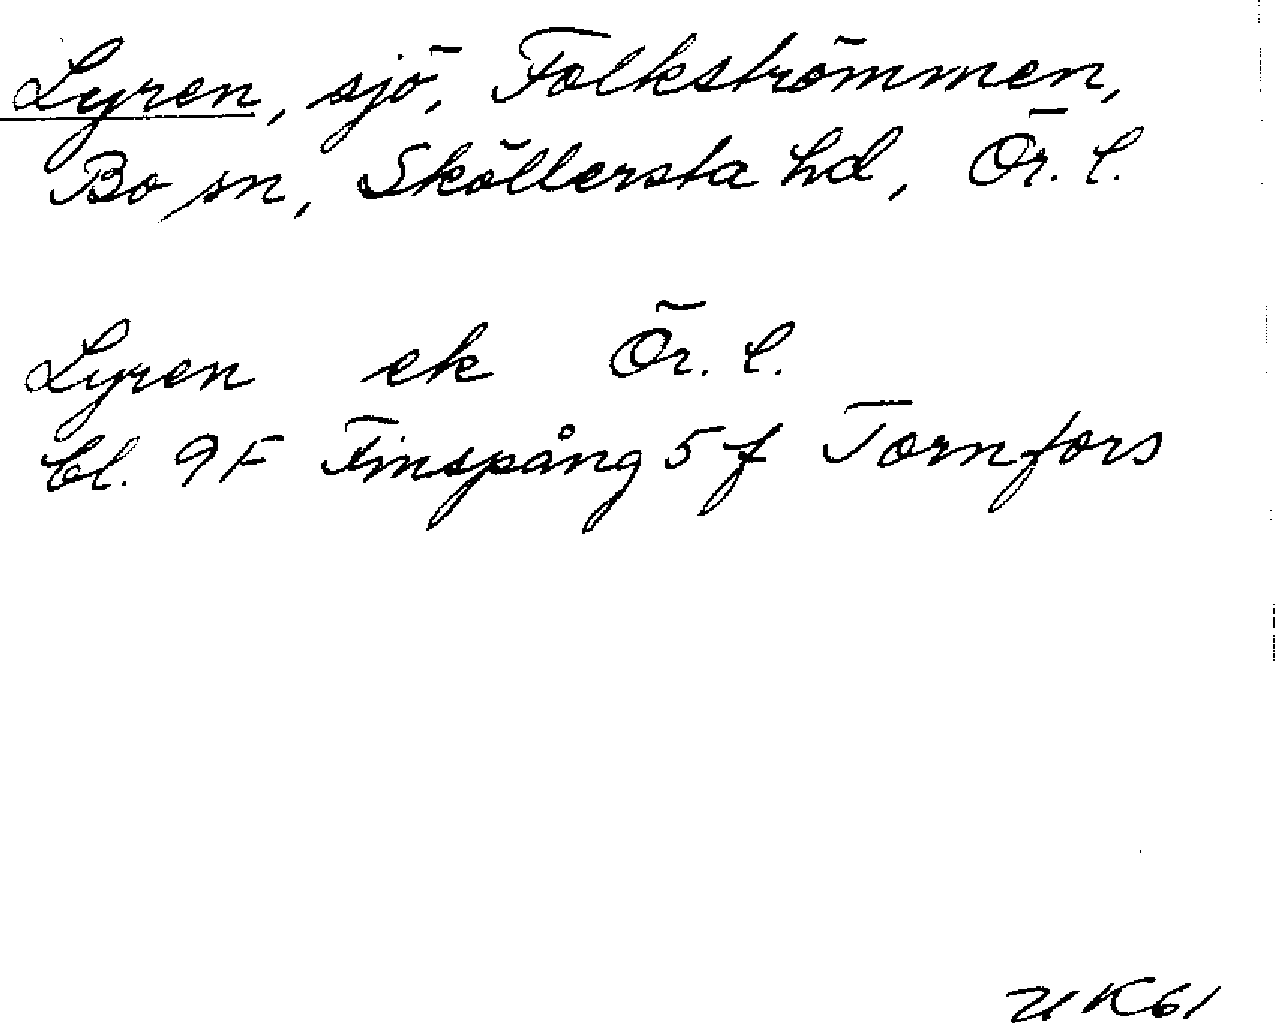 Lyren, sjö, Folkströmmen,
Bo sn, Sköllersta hd, Ör. l.
Lyren ek Ör. l.
bl. 9F Finspång 5 f Tornfors
UK61